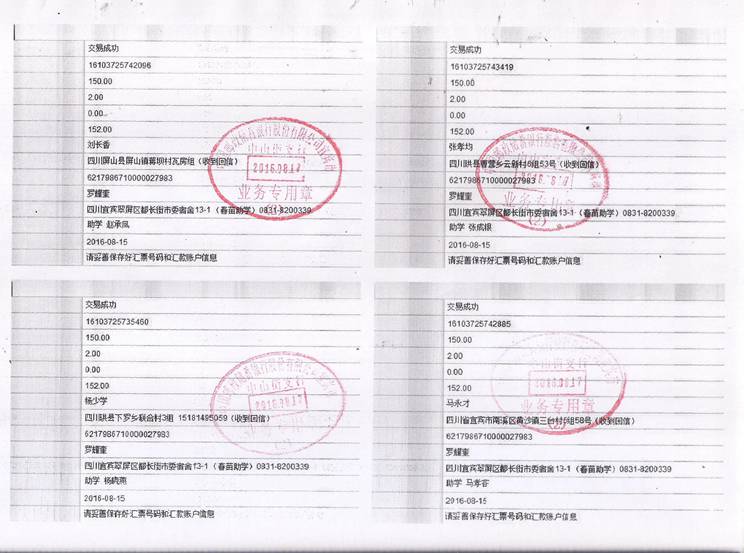 交易成功
16103725742096
150.00
2.00
0.00
152.00
刘长香
四川屏山县屏山镇蒋坝村瓦房组（收到回信）
6217986710000027983
罗耀奎
四川宜宾翠屏区都长街市委宿舍13-1（春苗助学）0831-8200339
助学 赵承凤
2016-08-15
请妥善保存好汇票号码和汇款账户信息
中山街支行
2016.08.17
业务专用章
(2)
交易成功
16103725743419
150.00
2.00
0.00
152.00
张孝均
四川珙县曹营乡云新村5组53号（收到回信）
6217986710000027983
罗耀奎
四川宜宾翠屏区都长街市委宿舍13-1（春苗助学）0831-8200339
助学 张成银
2016-08-15
请妥善保存好汇票号码和汇款账户信息
业务专用章
(2)
交易成功
16103725735460
150.00
2.00
0.00
152.00
杨少学
四川珙县下罗乡联合村3组 15181495059（收到回信）
6217986710000027983
罗耀奎
四川宜宾翠屏区都长街市委宿舍13-1（春苗助学）0831-8200339
助学 杨晓燕
2016-08-15
请妥善保存好汇票号码和汇款账户信息
中山街支行
2016.08.17
业务专用章
交易成功
16103725742885
150.00
2.00
0.00
152.00
马永才
四川省宜宾市南溪区黄沙镇三台村6组58号（收到回信）
6217986710000027983
罗耀奎
四川宜宾翠屏区都长街市委宿舍13-1（春苗助学）0831-8200339
助学 马孝容
2016-08-15
请妥善保存好汇票号码和汇款账户信息
中山街支行
2016.08.17
业务专用章
(2)